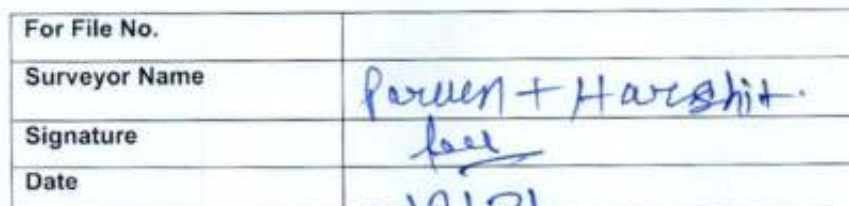 For File No.
Surveyor Name Parven + Harshit.
Signature
Date